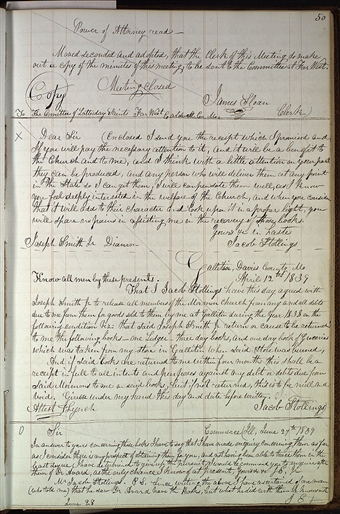 50
Power of Attorney read—
Moved seconded and adopted, that the Clerk of this Meeting do make
out a copy of the minutes of this meeting to be sent to the Committee at Far West.
Meeting closed
James Sloan
Clerk
Copy
To the Committee of Latterday Saints Far West, Caldwell Co. Mo.
X
Dear Sir Enclosed I send you the receipt which I promised and
if you will pay the necessary attention to it, and it will be a benefit to
the Church and to me, and I think with a little attention on your part
they can be produced, and any person who will deliver them at any point
in the State so I can get them, I will compensate them well, as I know
you feel deeply interested in the welfare of the Church, and when you consider
that it will add to their character and look upon it in a proper light, you
will spare no pains in assisting me in the recovery of those books
Yours &c in haste
Joseph Smith Jr
Jacob Stollings
Gallatin, Davies County, Mo
April 12th 1839
Know all men by these presents,
That I Jacob Stollings have this day agreed with
Joseph Smith Jr to release all members of the Mormon Church from any and all debts
due to me from them for goods sold to them by me at Gallatin during the year 1838 on the
following condition viz: that said Joseph Smith Jr return or cause to be returned
to me the following books— one Ledger, three day books, and one day book of Groceries
which was taken from my store in Gallatin when said store was burned.
And if said books are returned to me within four months this shall be a
receipt in full to all intents and purposes against any debt or debts due from
said Mormons to me on said books, but if not returned, this is to be null and
void. Given under my hand this day and date before written.
Attest
Jacob Stollings
Sir
Commerce Ill, June 27th 1839
In answer to yours concerning those books I have to say that I have made inquiry concerning them as far
Mr Jacob Stollings. P.S. Since writing the above I have ascertained of a man
June 28